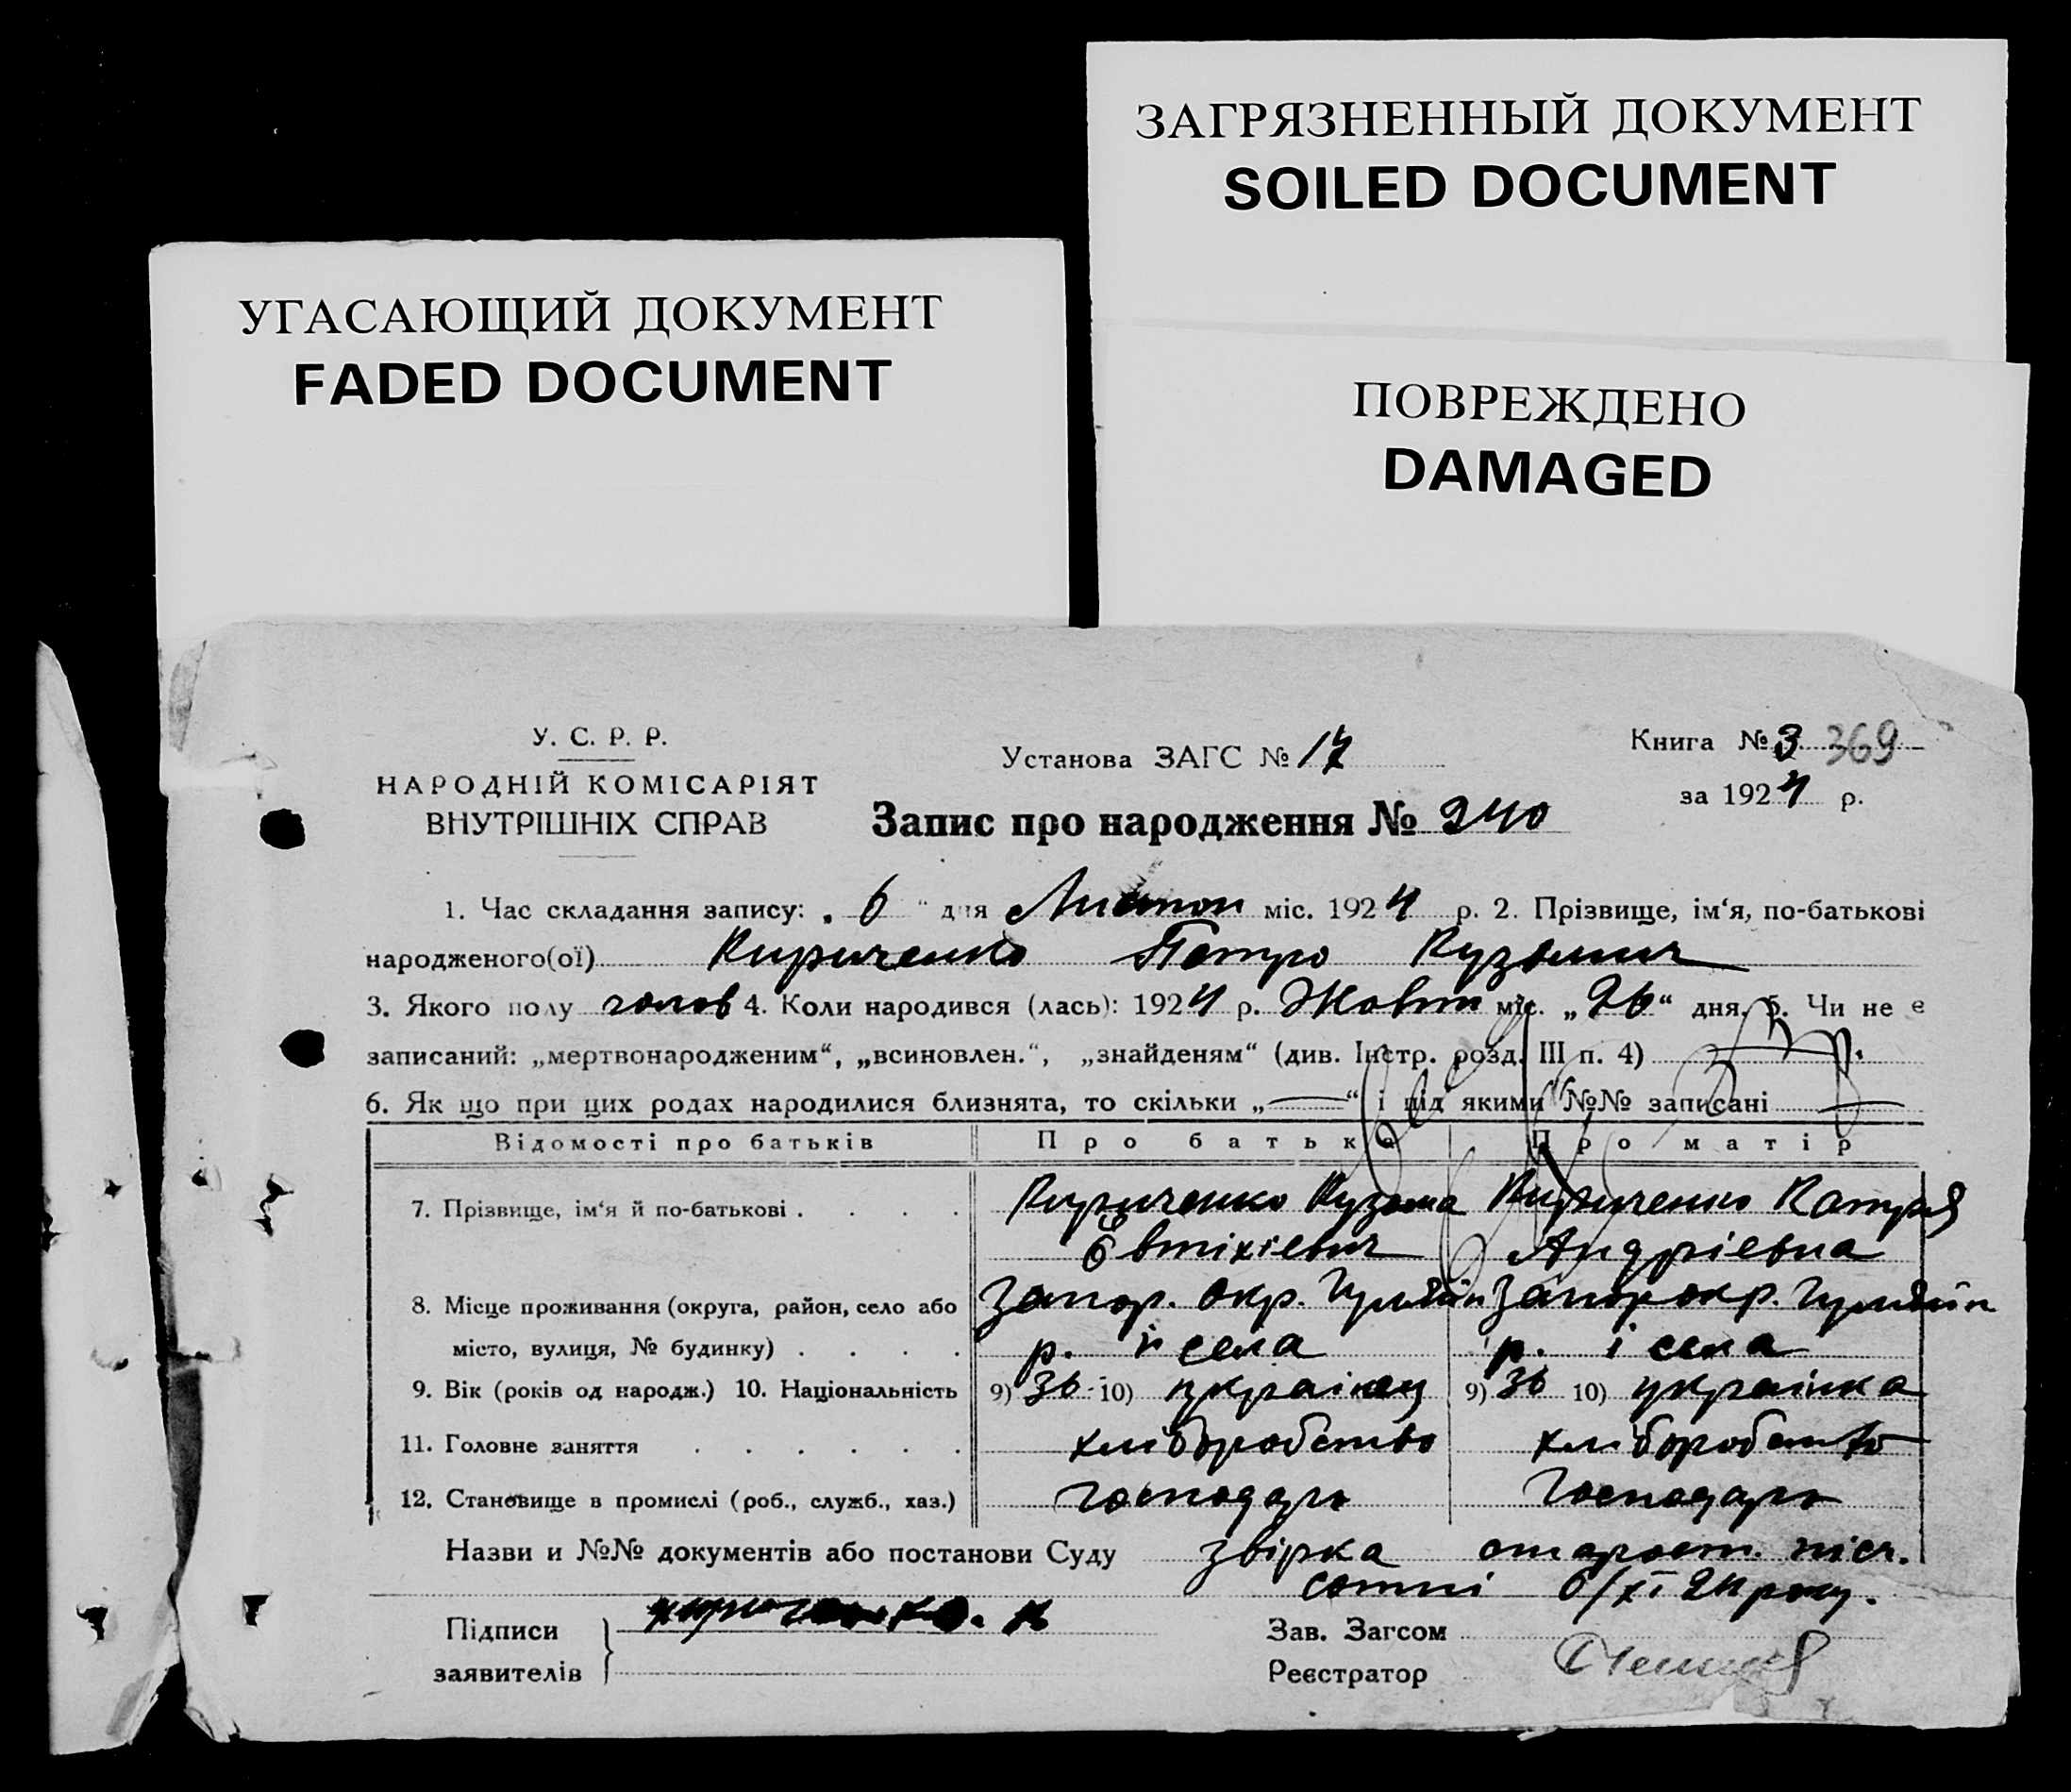 ЗАГРЯЗНЕННЫЙ ДОКУМЕНТ
SOILED DOCUMENT
УГАСАЮЩИЙ ДОКУМЕНТ
FADED DOCUMENT
ПОВРЕЖДЕНО
DAMAGED
У. С. Р. Р.
НАРОДНІЙ КОМІСАРІЯТ
ВНУТРІШНІХ СПРАВ
Установа ЗАГС № 17
Книга № 3 369
за 1924 р.
Запис про народження № 240
1. Час складання запису: „ 6 " дня Листоп міс. 1924 р. 2. Прізвище, ім'я, по-батькові
народженого(ої) Кириченко Петро Кузьмич
3. Якого полу чолов 4. Коли народився (лась): 1924 р. Жовт міс. „26" дня. 5. Чи не є
записаний: „мертвонародженим", „всиновлен.", „знайденям" (див. Інстр. розд. III п. 4)
6. Як що при цих родах народилися близнята, то скільки „—" і під якими №№ записані —
Відомості про батьків Про батька Про матір
7. Прізвище, ім'я й по-батькові . . . . Кириченко Кузьма Кириченко Катря
Євтіхієвич Андрієвна
8. Місце проживання (округа, район, село або Запор. Окр. Гуляйп Запор окр. Гуляйп
місто, вулиця, № будинку) . . . . р. й села р. і села
9. Вік (років од народж.) 10. Національність 9) 36 10) українец 9) 36 10) українка
11. Головне заняття . . . . . . хліборобство хліборобство
12. Становище в промислі (роб., служб., хаз.) господарь господарь
Назви и №№ документів або постанови Суду звірка старост.
сотні 6/XI 24 року.
Підписи Кириченко. К
заявителів
Зав. Загсом
Реєстратор